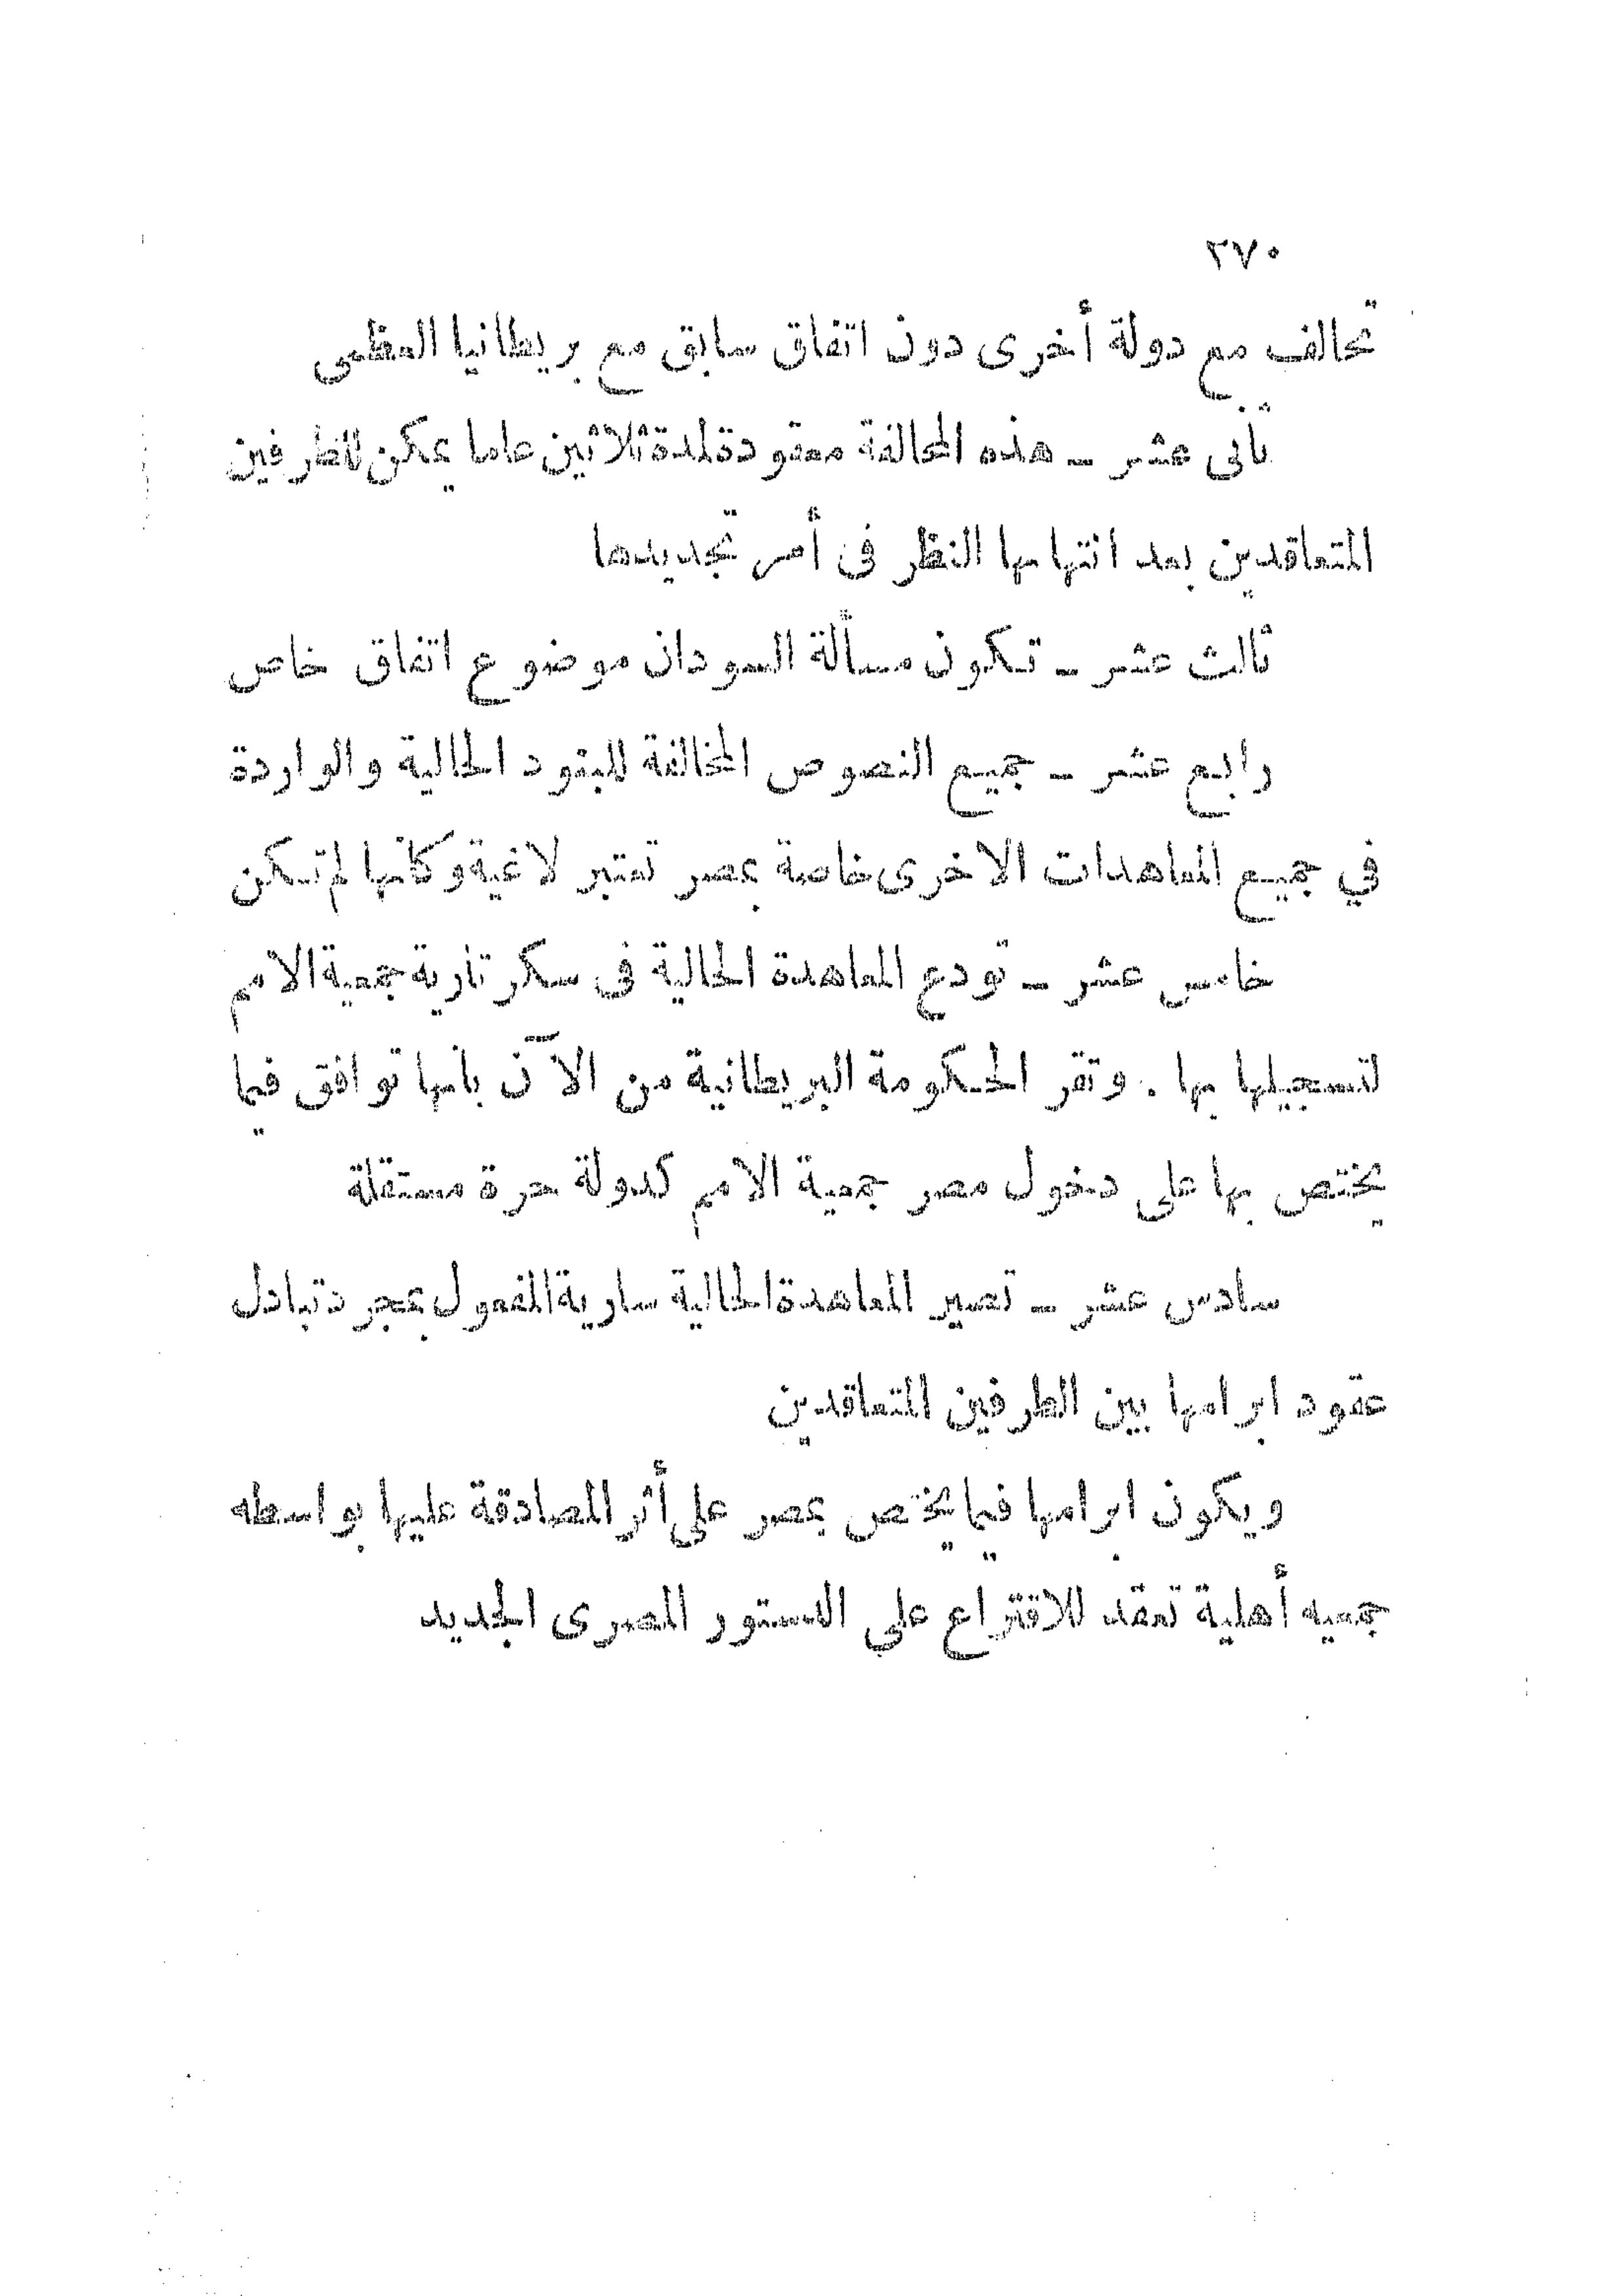 ٢٧٠
تحالف مع دولة أخرى دون اتفاق سابق مع بريطانيا العظمى
ثانى عشر ـ هذه المحالفة معقودة لمدة ثلاثين عاما يمكن للطرفين
المتعاقدين بعد انتهامها النظر فى أمر تجديدها
ثالث عشر ـ تكون مسألة السودان موضوع اتفاق خاص
رابع عشر ـ جميع النصوص المخالفة للبنود الحالية والواردة
في جميع المعاهدات الاخرى خاصة بمصر تعتبر لاغية وكأنها لم تكن
خامس عشر ـ تودع المعاهدة الحالية فى سكرتارية جمعية الامم
لتسجيلها بها . وتقر الحكومة البريطانية من الآن بانها توافق فيما
يختص بها على دخول مصر جمعية الامم كدولة حرة مستقلة
سادس عشر ـ تصير المعاهدة الحالية سارية المفعول بمجرد تبادل
عقود ابرامها بين الطرفين المتعاقدين
ويكون ابرامها فيما يختص بمصر على أثر المصادقة عليها بواسطه
جمعيه أهلية تعقد للاقتراع على الدستور المصرى الجديد